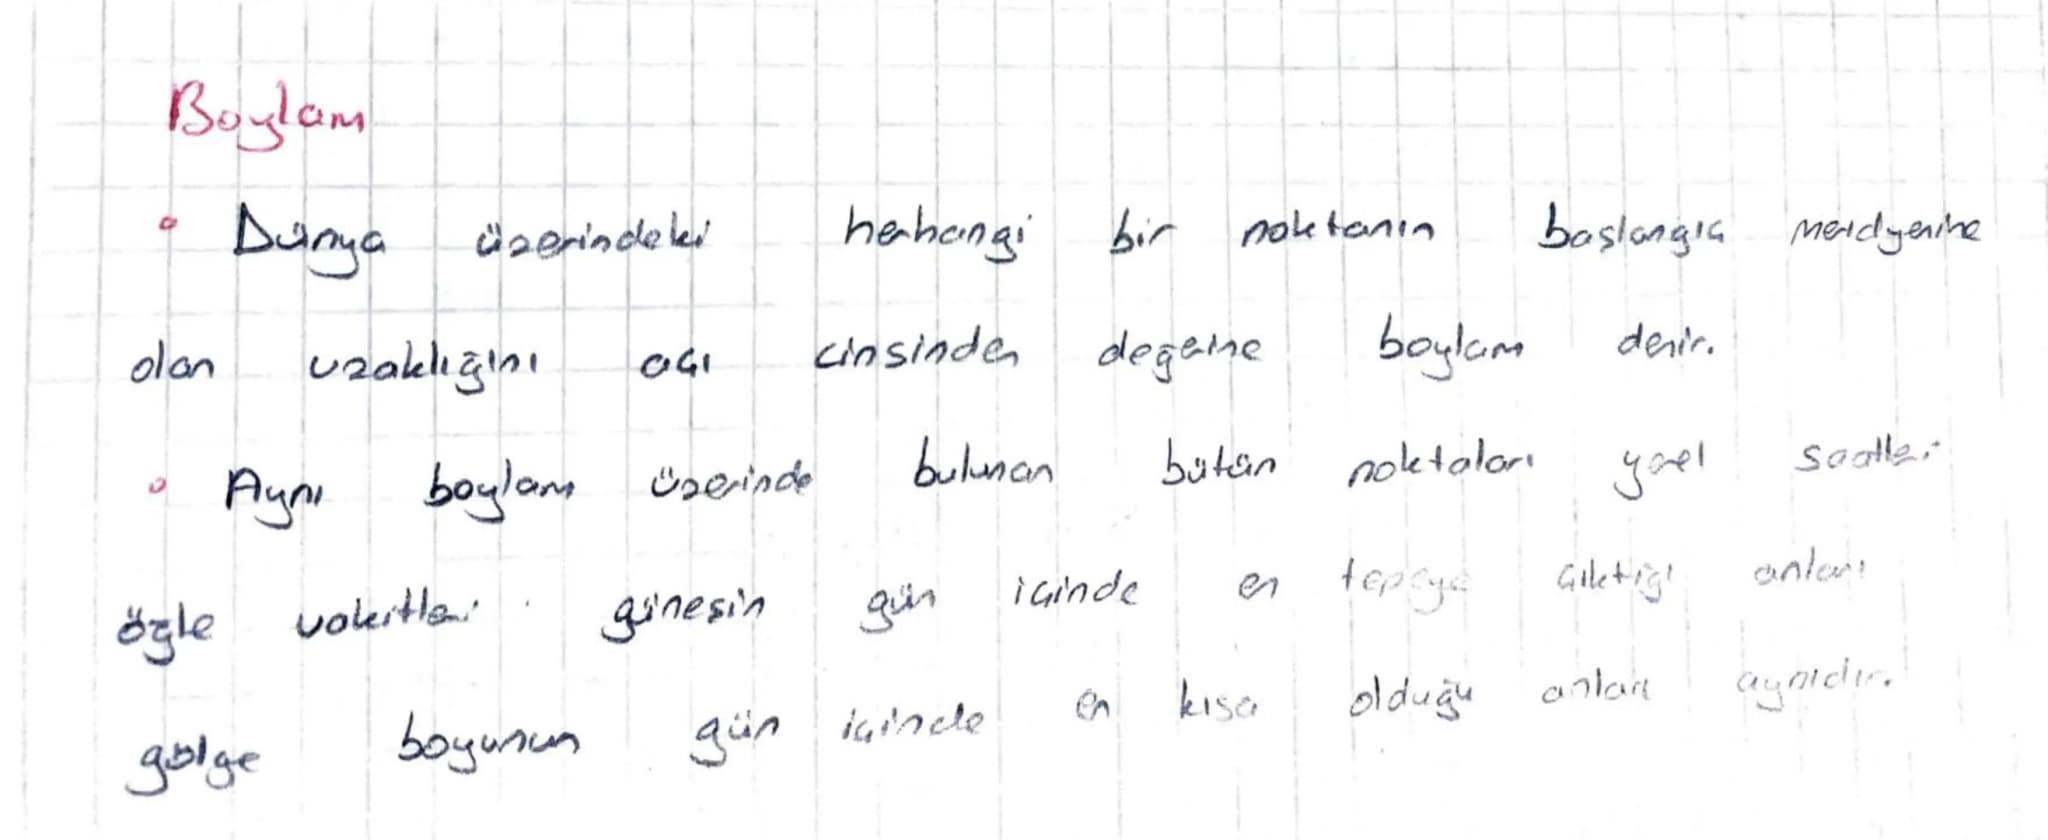 Boylam
° Dünya üzerindeki herhangi bir noktanın başlangıç meridyenine
olan uzaklığını açı cinsinden değerine boylam denir.
° Aynı boylam üzerinde bulunan bütün noktaları yerel saatleri
öğle vakitleri güneşin gün içinde en tepeye çıktığı anları
gölge boyunun gün içinde en kısa olduğu anları aynıdır.